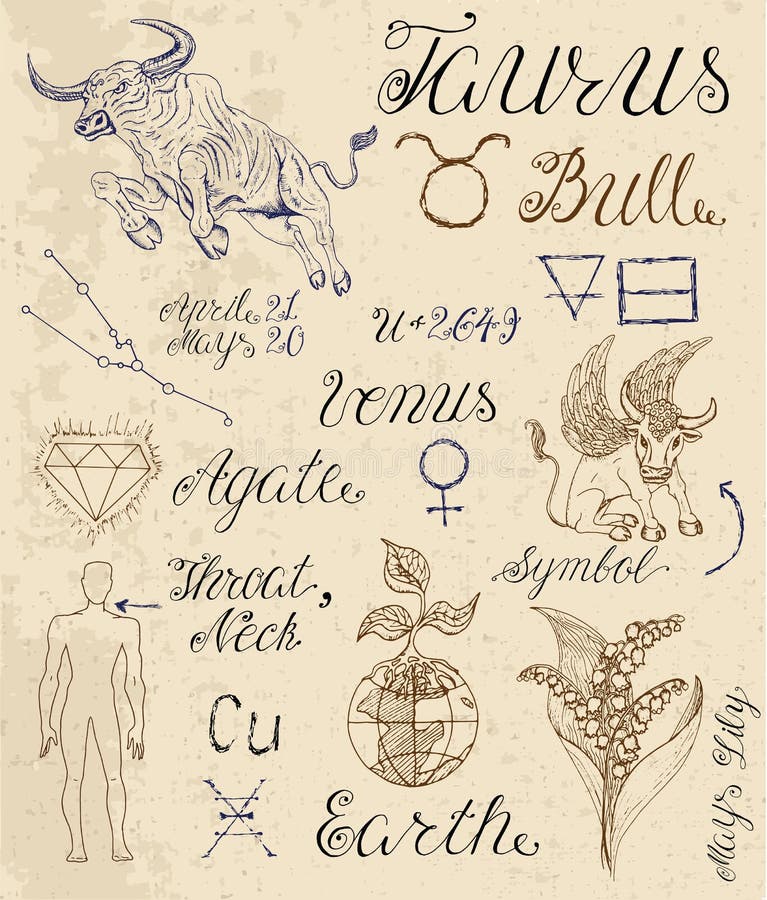 Taurus
Bull
April 21
May 20
U+2649
Venus
Agate
Symbol
Throat,
Neck
Cu
Earth
May Lily